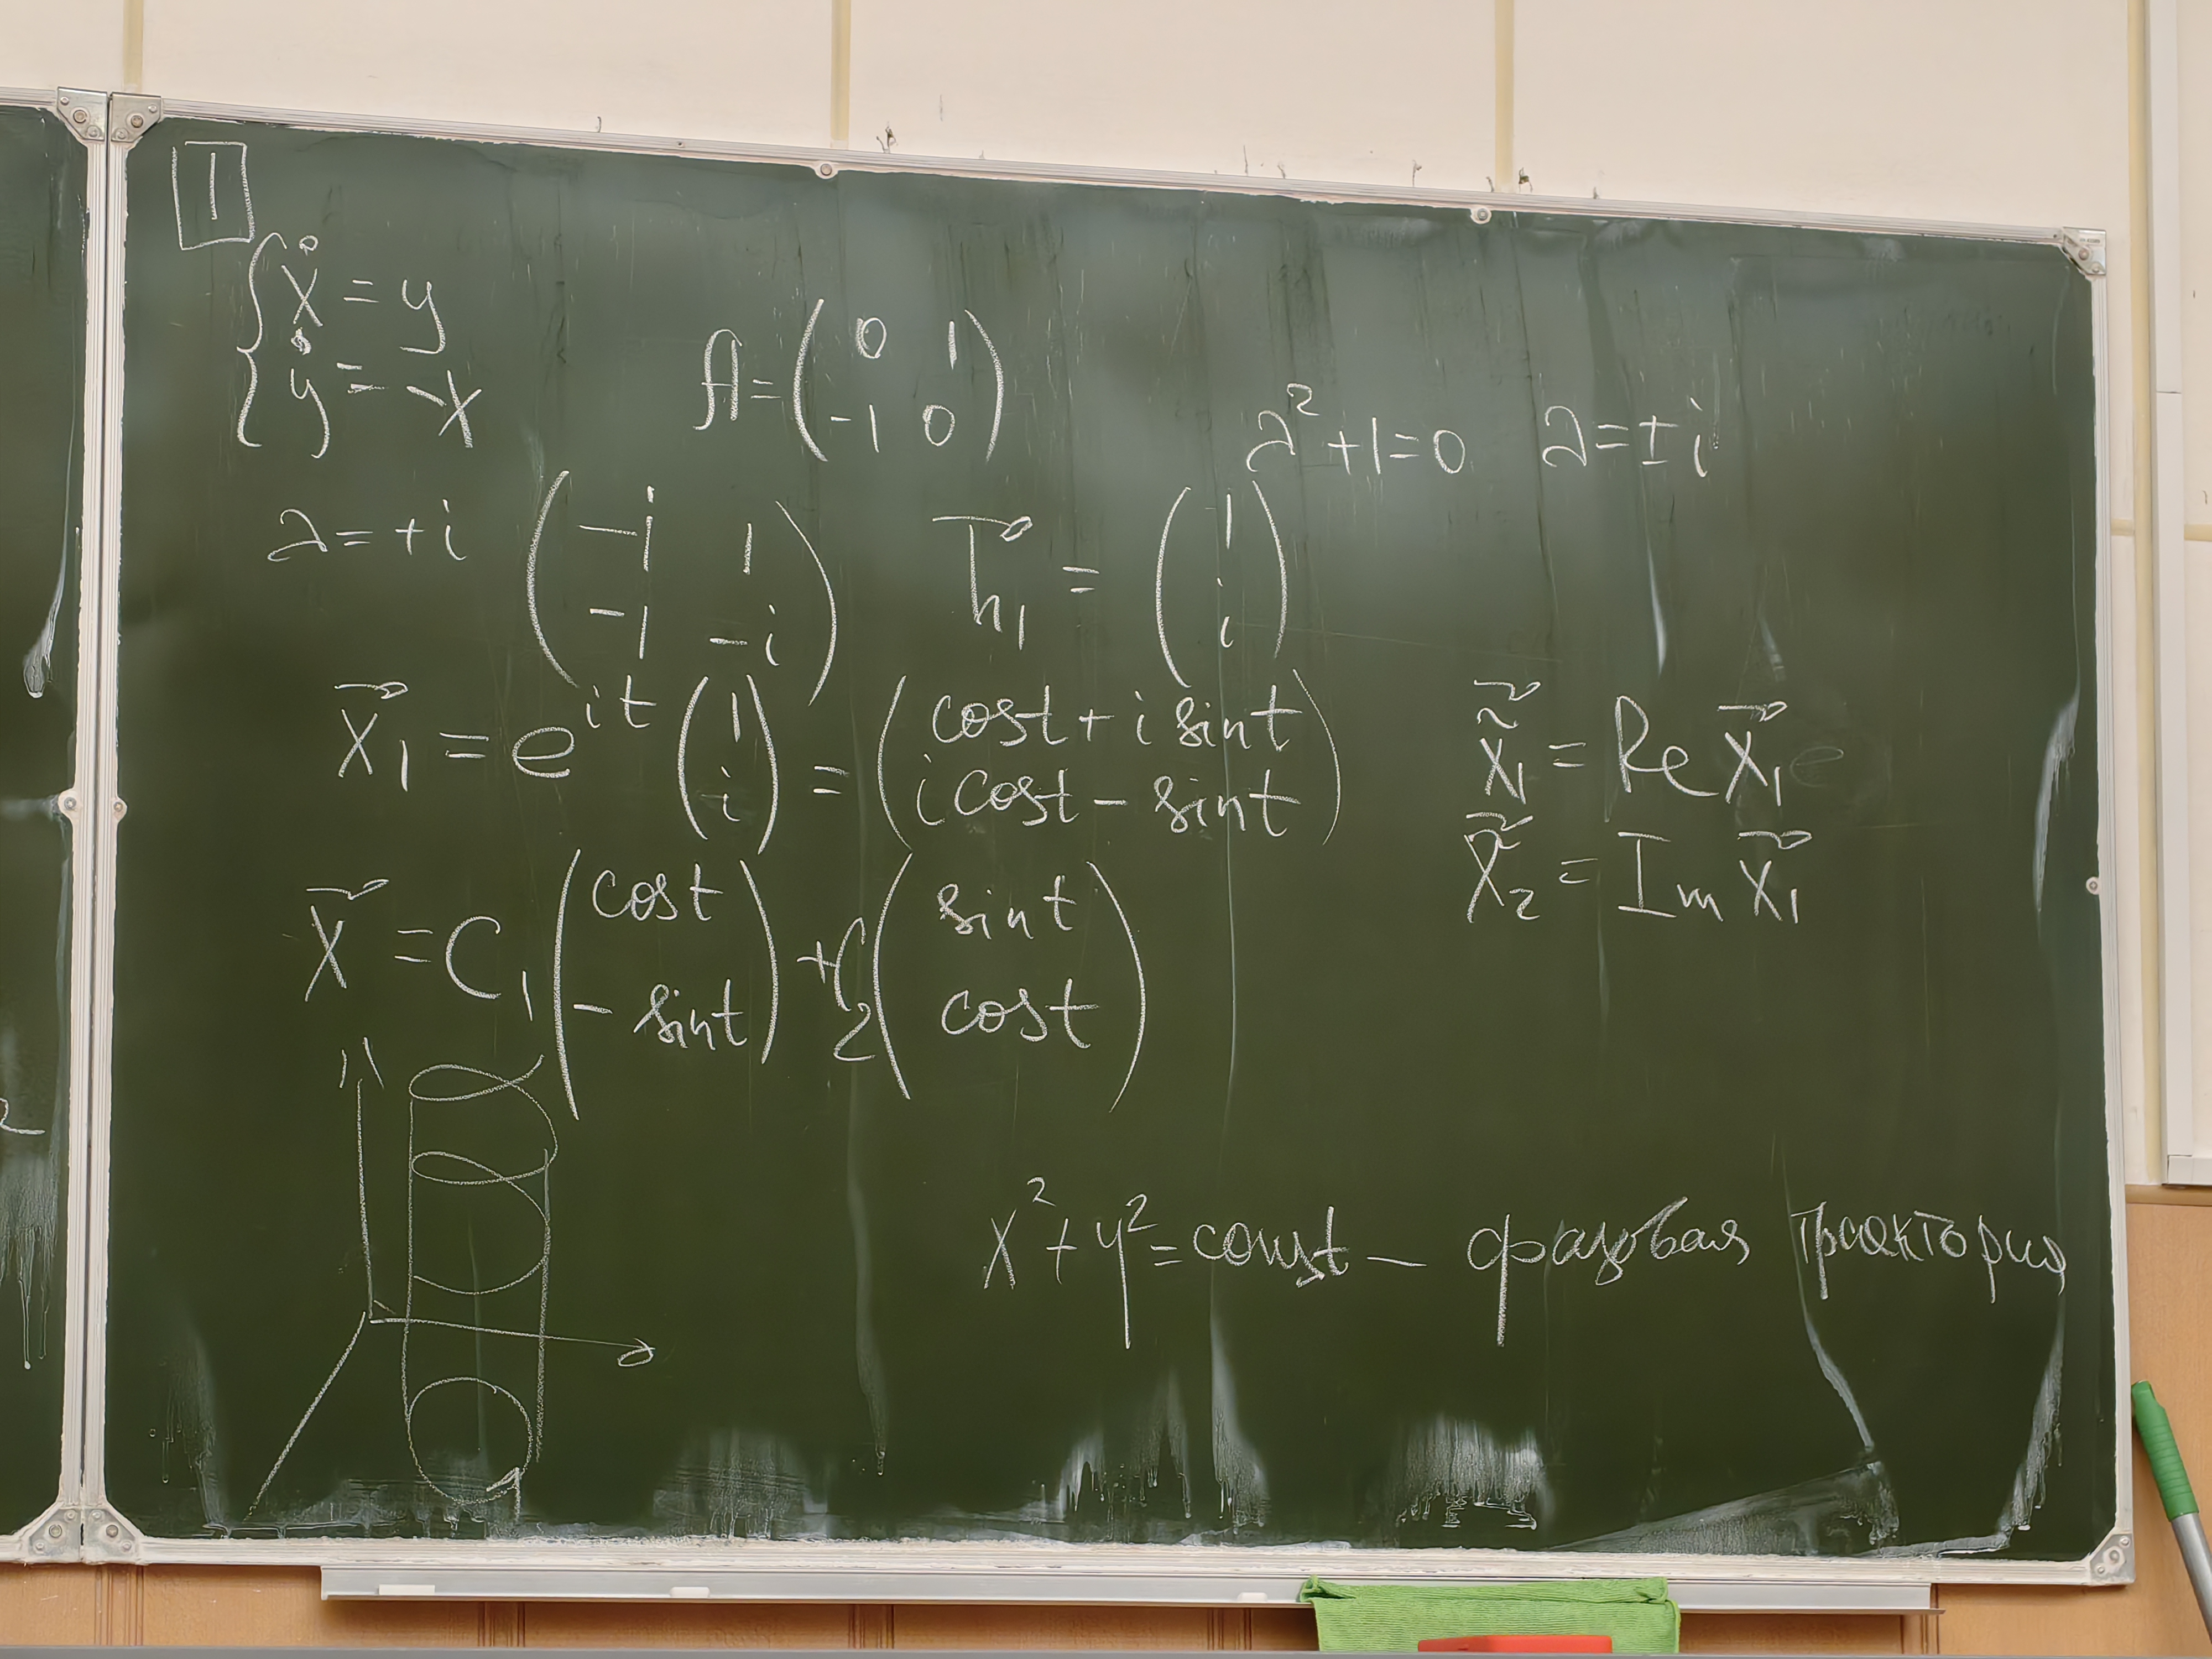 1
{ ẋ = y
{ ẏ = -x
A = ( 0 1
-1 0 )
λ² + 1 = 0 λ = ± i
λ = + i ( -i 1
-1 -i )
h⃗₁ = ( 1
i )
x⃗₁ = e^{it} ( 1
i ) = ( cost + i sint
i cost - sint )
x̃⃗₁ = Re x⃗₁
x̃⃗₂ = Im x⃗₁
x⃗ = C₁ ( cost
- sint ) + C₂ ( sint
cost )
x² + y² = const — фазовая траектория